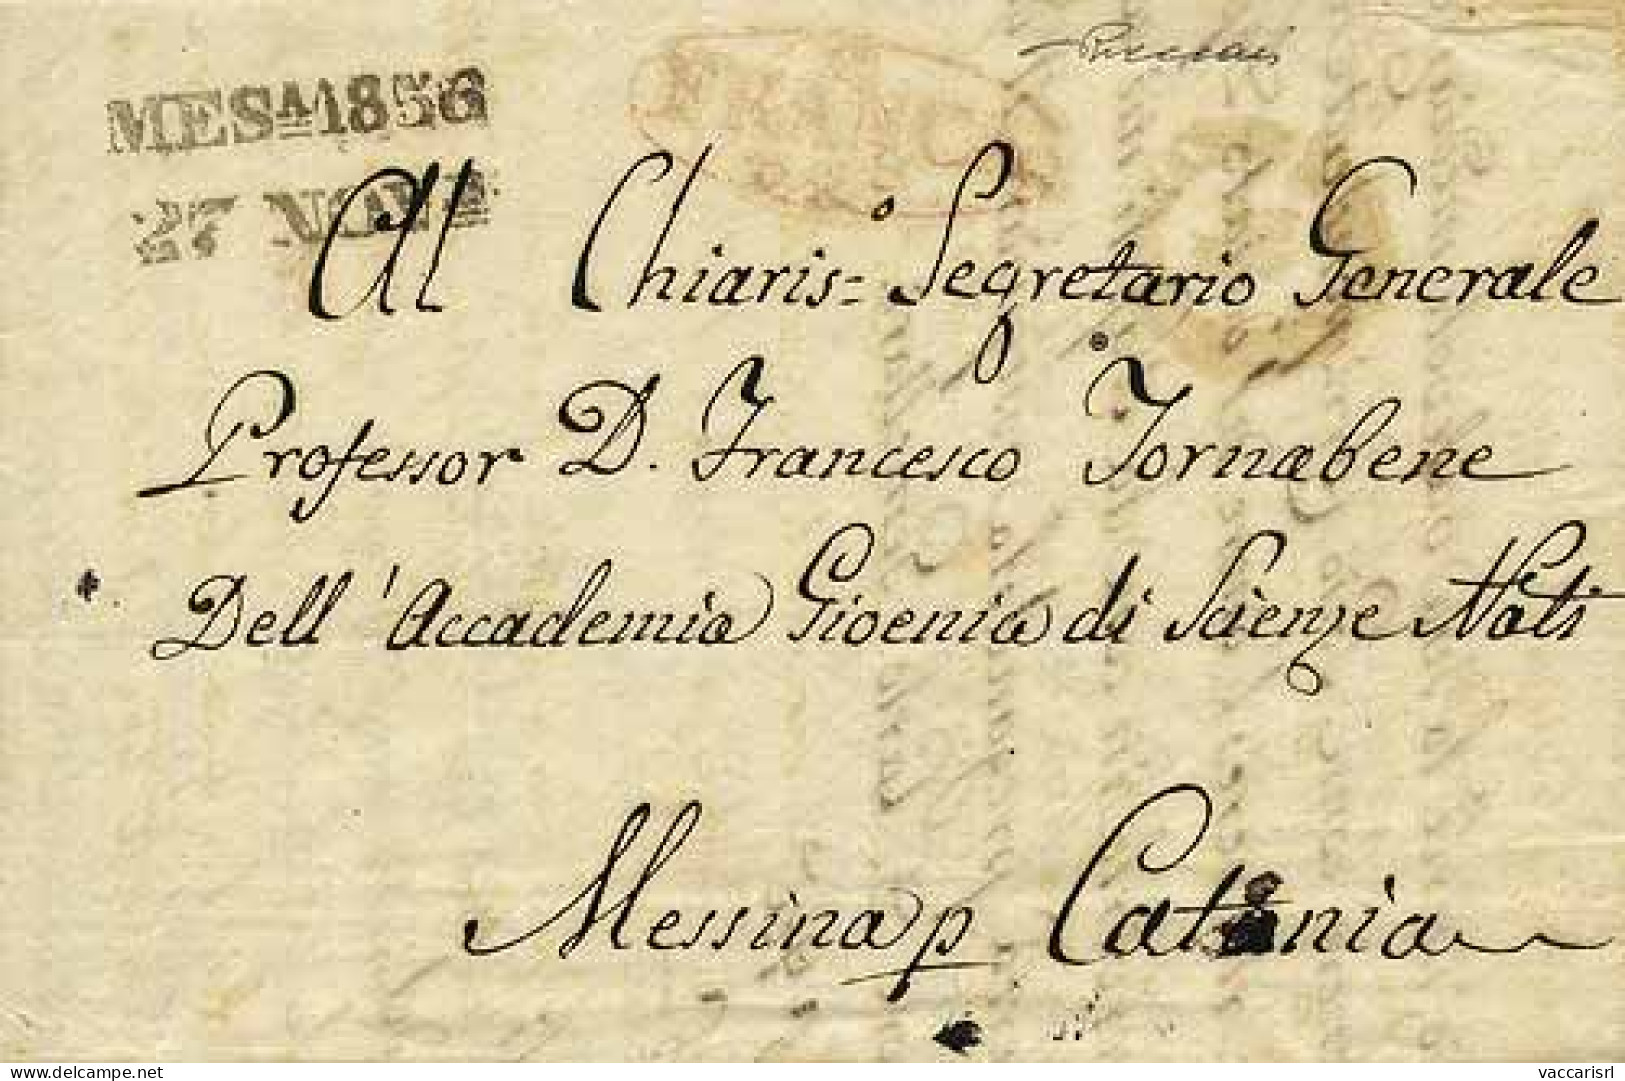 MESᴬ 1856
27 NOV
FRANCA
Al Chiaris:º Segretario Generale
Professor D. Francesco Tornabene
Dell'Accademia Gioenia di Scienze Nali
Messina p Catania
delcampe.net
vaccarisrl